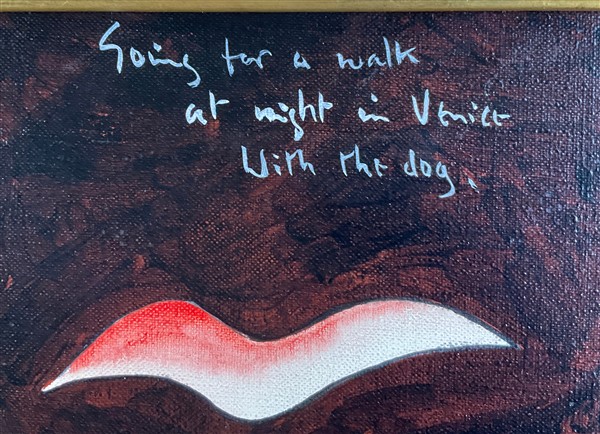 Going for a walk
at night in Venice
With the dog.